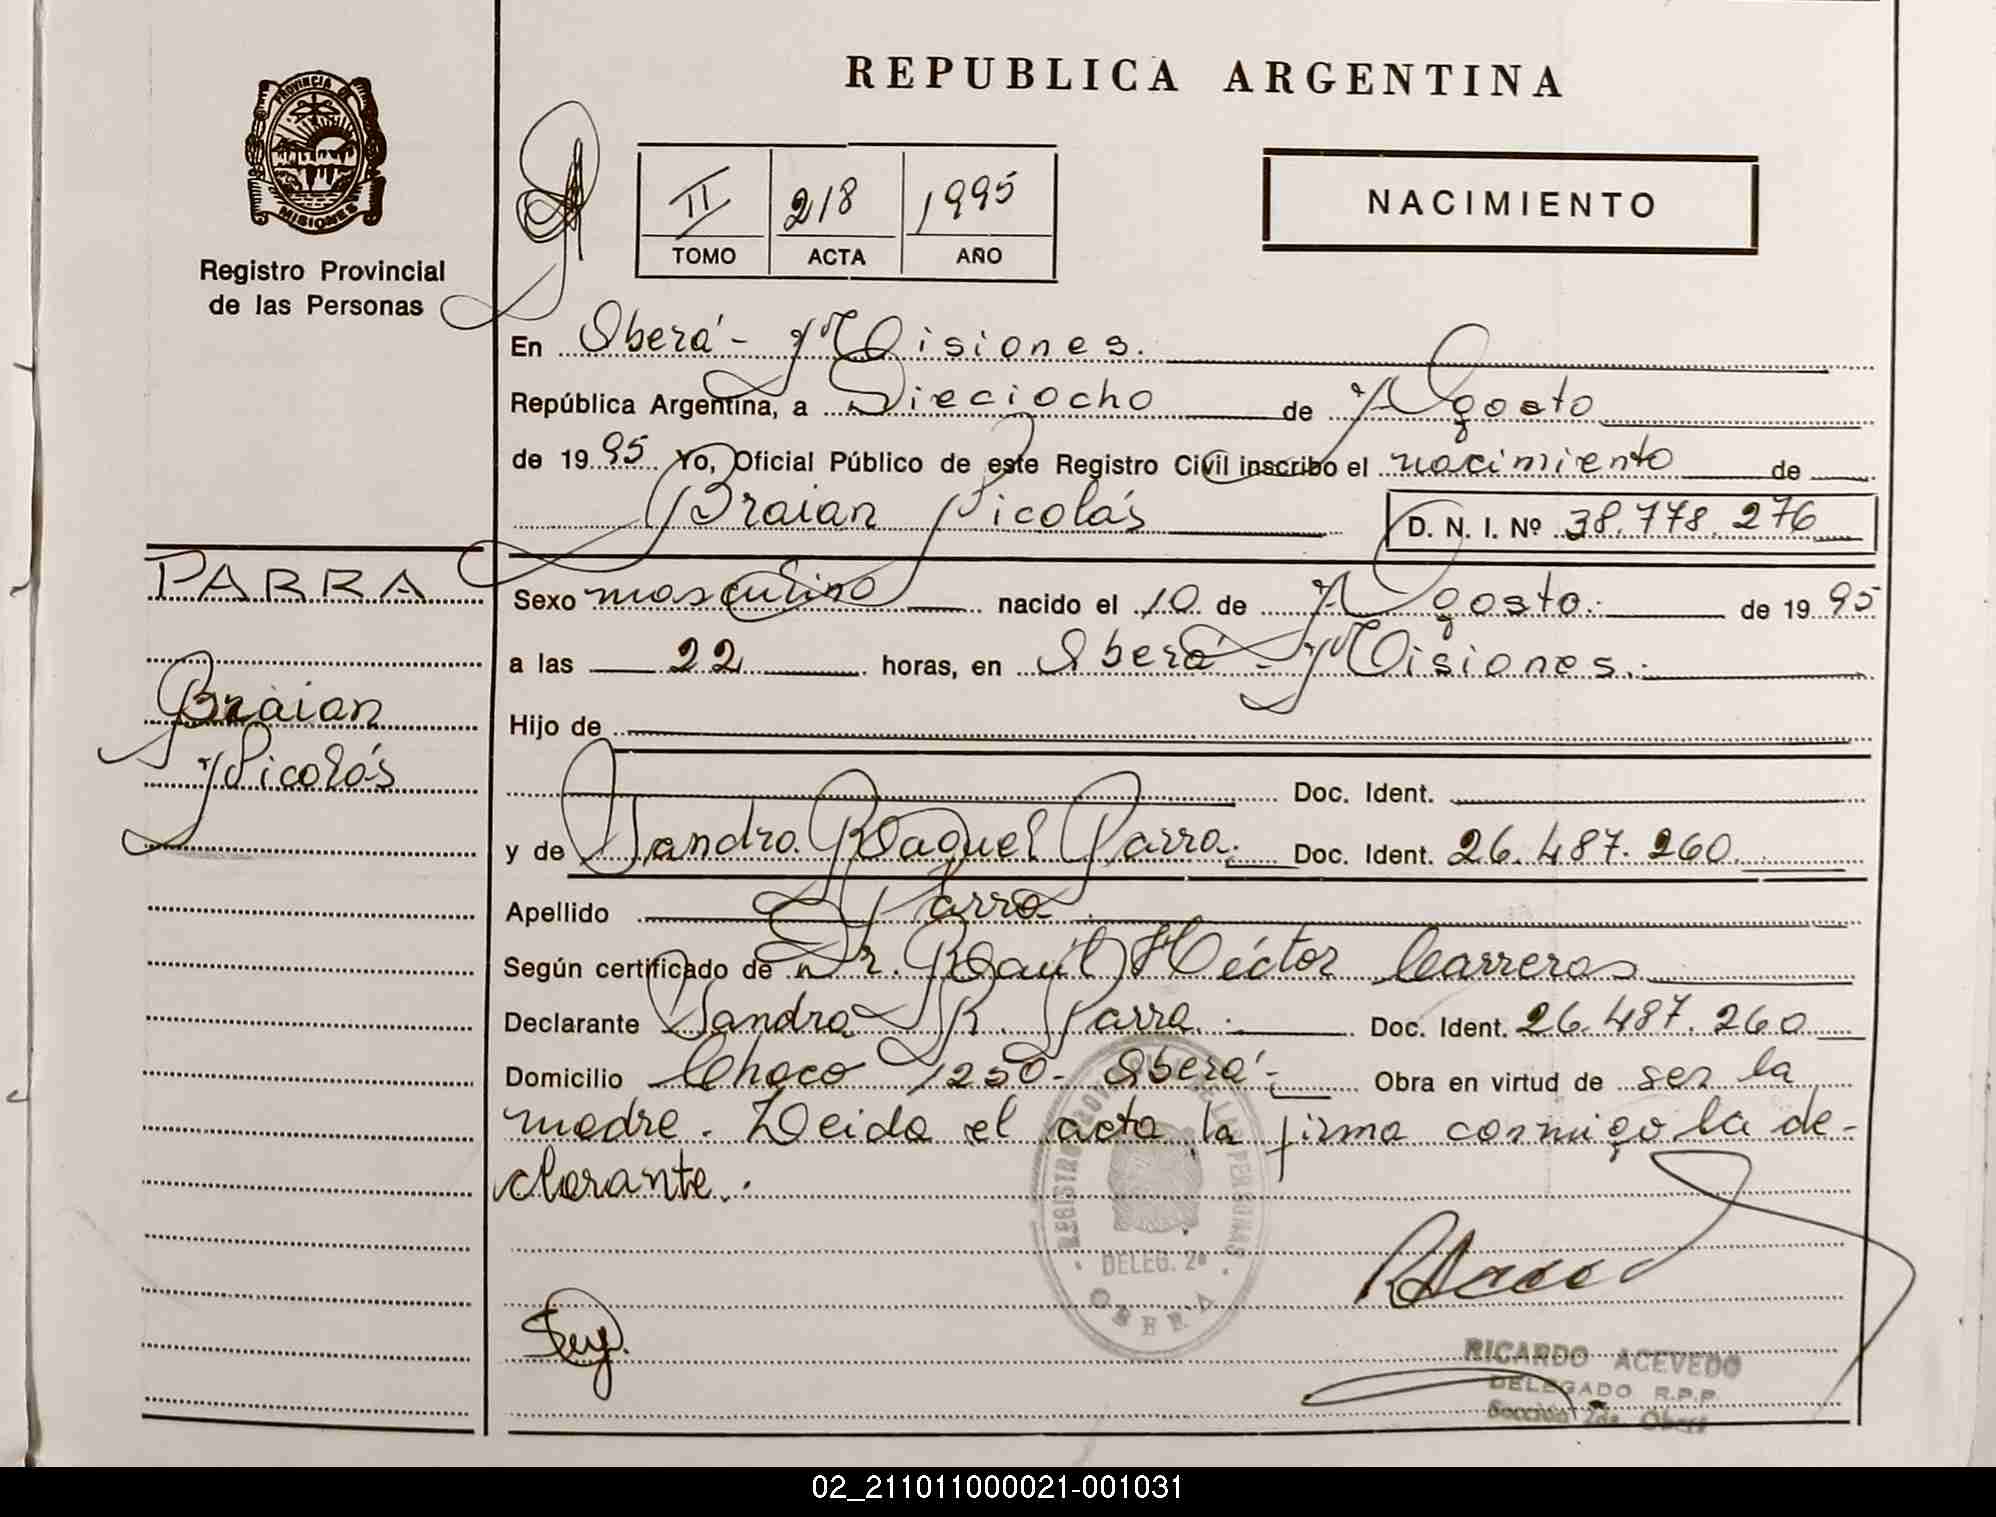 REPUBLICA ARGENTINA
PROVINCIA DE
MISIONES
Registro Provincial
de las Personas
II 218 1995
TOMO ACTA AÑO
NACIMIENTO
En Oberá - Misiones.
República Argentina, a Dieciocho de Agosto
de 1995 Yo, Oficial Público de este Registro Civil inscribo el nacimiento de
Braian Nicolás D. N. I. Nº 38.778.276
PARRA
Braian
Nicolás
Sexo masculino nacido el 10 de Agosto. de 1995
a las 22 horas, en Oberá - Misiones.
Hijo de
Doc. Ident.
y de Sandra Raquel Parra. Doc. Ident. 26.487.260
Apellido Parra
Según certificado de Dr. Raúl Héctor Carreras
Declarante Sandra R. Parra. Doc. Ident. 26.487.260
Domicilio Chaco 1250 - Oberá - Obra en virtud de ser la
madre. Leida el acta la firma conmigo la de-
clarante.
REGISTRO PROVINCIAL DE LAS PERSONAS
DELEG. 2ª
OBERA
RICARDO ACEVEDO
DELEGADO R.P.P.
Sección 2da. Oberá
02_211011000021-001031